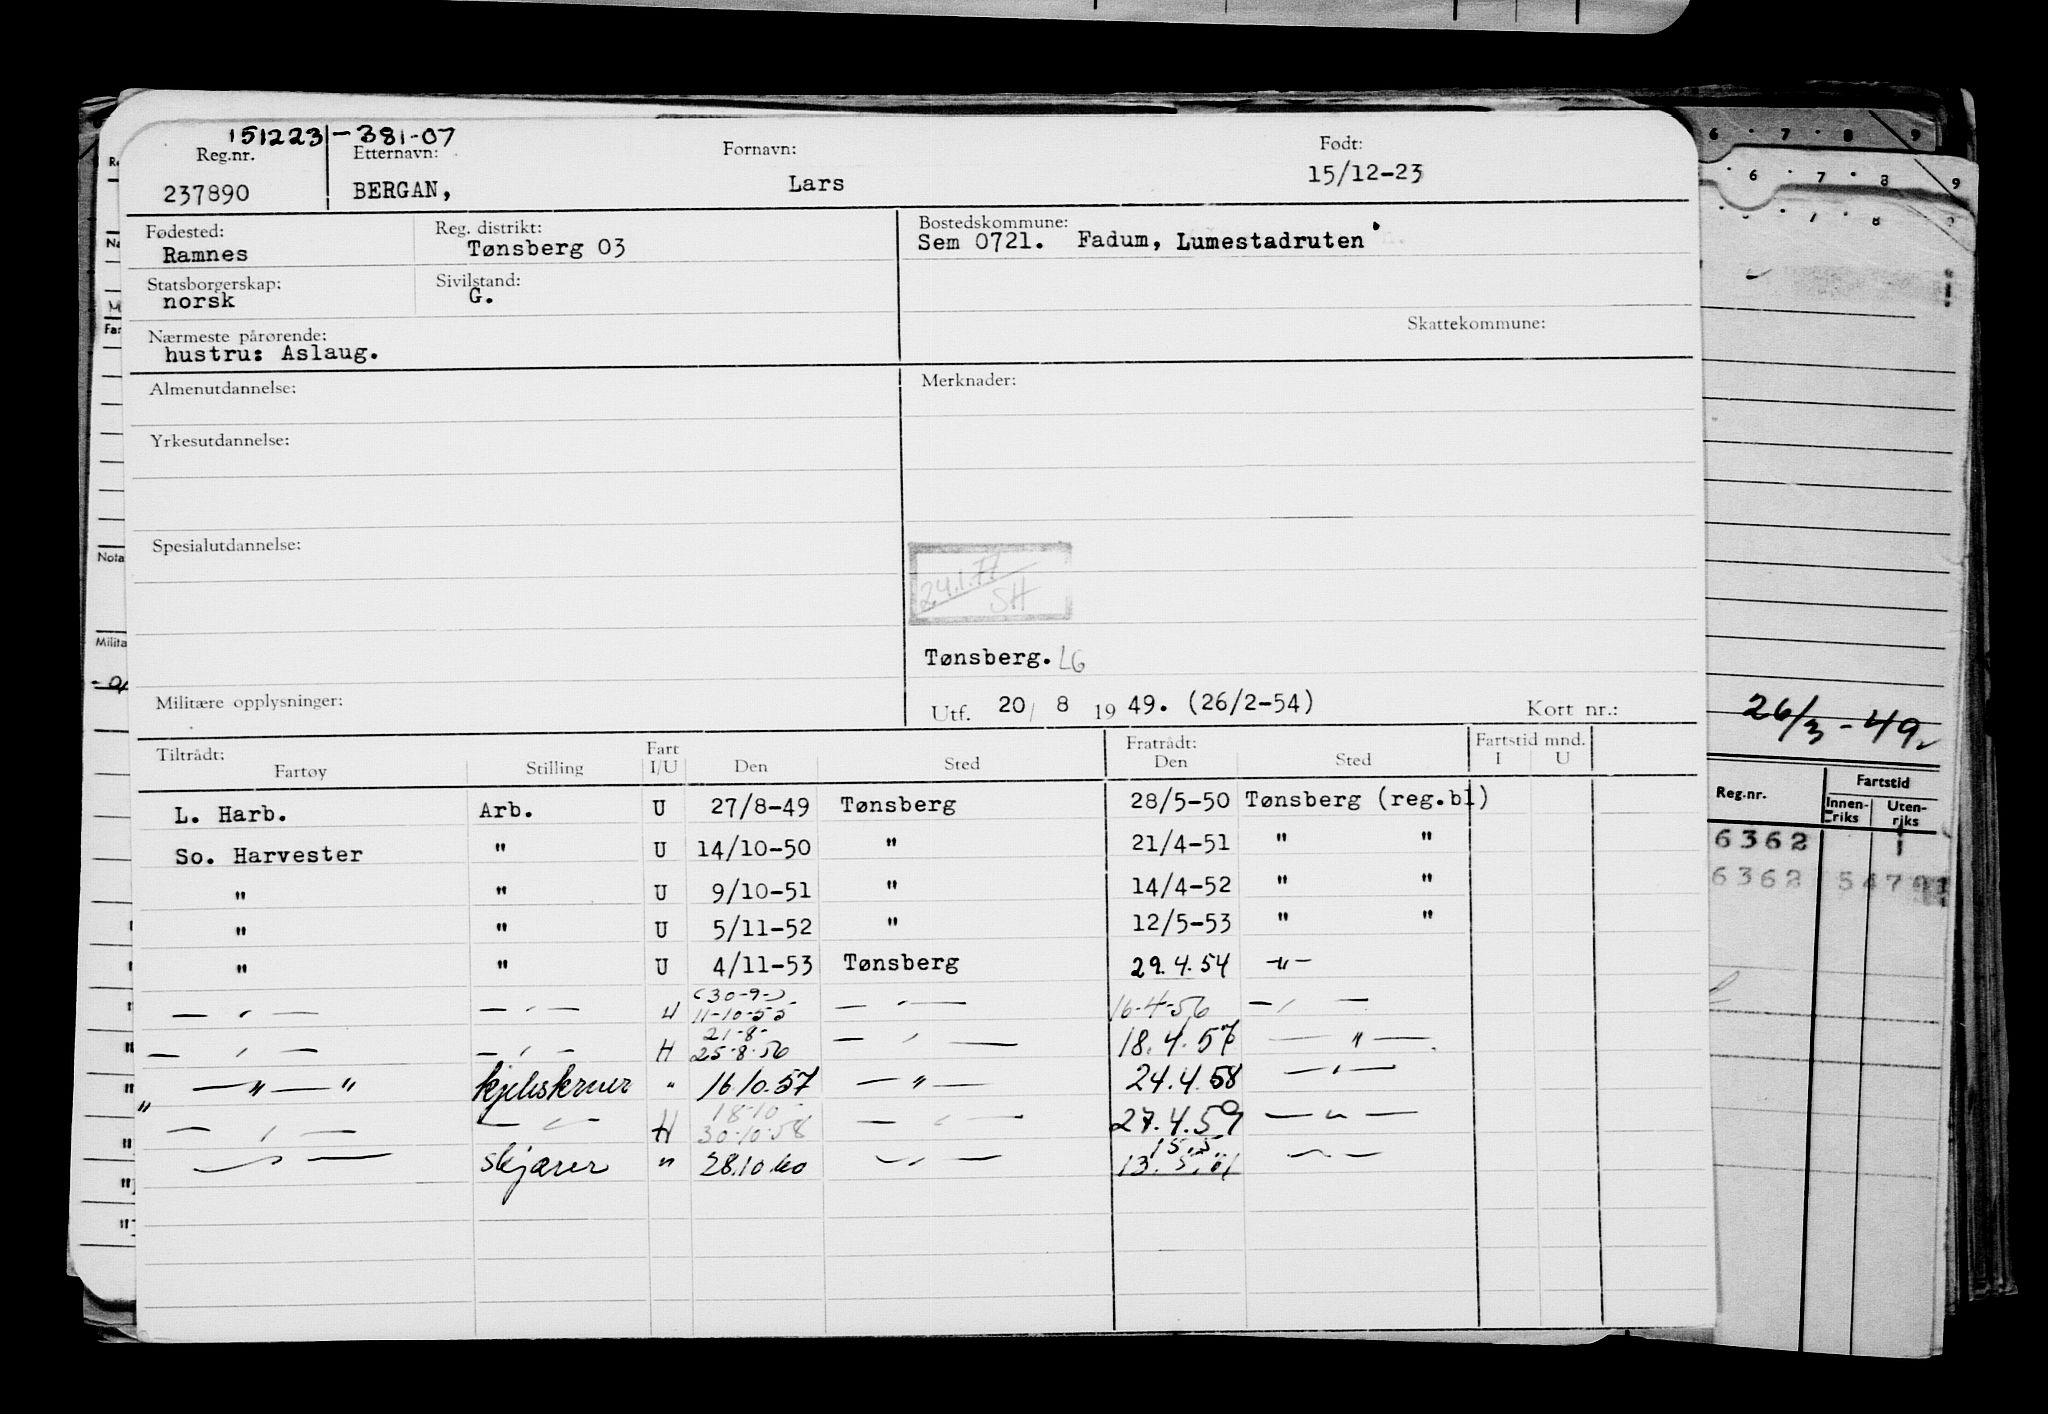 151223-381-07
Reg.nr. Etternavn: Fornavn: Født:
237890 BERGAN, Lars 15/12-23
Fødested: Reg. distrikt: Bostedskommune:
Ramnes Tønsberg 03 Sem 0721. Fadum, Lumestadruten
Statsborgerskap: Sivilstand:
norsk G.
Nærmeste pårørende: Skattekommune:
hustru: Aslaug.
Almenutdannelse: Merknader:
Yrkesutdannelse:
Spesialutdannelse:
24.1.77
SH
Tønsberg. LG
Militære opplysninger: Utf. 20/ 8 19 49. (26/2-54) Kort nr.:
Tiltrådt: Fart Fratrådt: Fartstid mnd.
Fartøy Stilling I/U Den Sted Den Sted I U
L. Harb. Arb. U 27/8-49 Tønsberg 28/5-50 Tønsberg (reg.bl)
So. Harvester " U 14/10-50 " 21/4-51 " "
" " U 9/10-51 " 14/4-52 " "
" " U 5/11-52 " 12/5-53 " "
" " U 4/11-53 Tønsberg 29.4.54 -"-
(30-9-)
— " — — " — U 11-10-55 — " — 16-4-56 — " —
21-8-
— " — — " — H 25-8-56 — " — 18.4.57 — " —
" — " — " " 16 10.57 — " — 24.4.58 — " —
18-10-
— " — — " — H 30-10-58 — " — 27.4.59 — " —
15.5.
— " — skjærer " 28.10.60 — " — 13.5.61 — " —
26/3-49
Reg.nr. Fartstid
Innenriks Utenriks
6362
6362
Nota
Milita
6 7 8 9
6 7 8 9